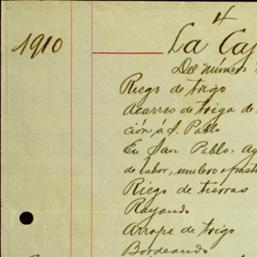 4
1910
La Cap
Del número
Riego de trigo
Acarreo de trigo de
ción á S. Pablo
En San Pablo: Ay
de labor,
Riego de tierras
Rayando
Arrope de trigo
Bordeando